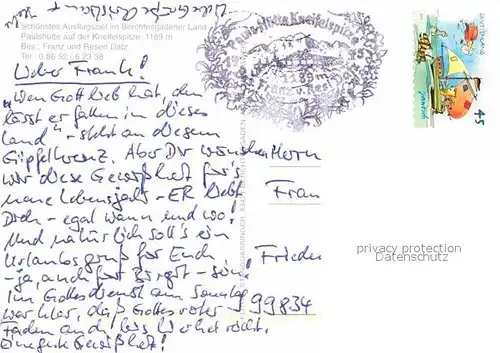 Schönstes Ausflugsziel im Berchtesgadener Land
Paulshütte auf der Kneifelspitze 1189 m
Bes.: Franz und Reseri Datz
Tel. 0 86 52 / 6 23 38
Lieber Frank!
"Wen Gott lieb hat, den
lässt er fallen in dieses
Land" - steht an diesem
Gipfelkreuz. Aber Dir wünschen
wir diese Gewissheit für's
neue Lebensjahr - ER liebt
Dich - egal wann und wo!
Und natürlich soll's ein
Urlaubsgruß für Euch
- ja, auch für Birgit - sein.
Im Gottesdienst am Sonntag
war klar, daß Gottes roter
Faden auch bis
Eine gute Gewissheit!
Paulshütte Kneifelspitze
1189 m
Herrn
Fran
Frieder
99834
DEUTSCHLAND
45
privacy protection
Datenschutz